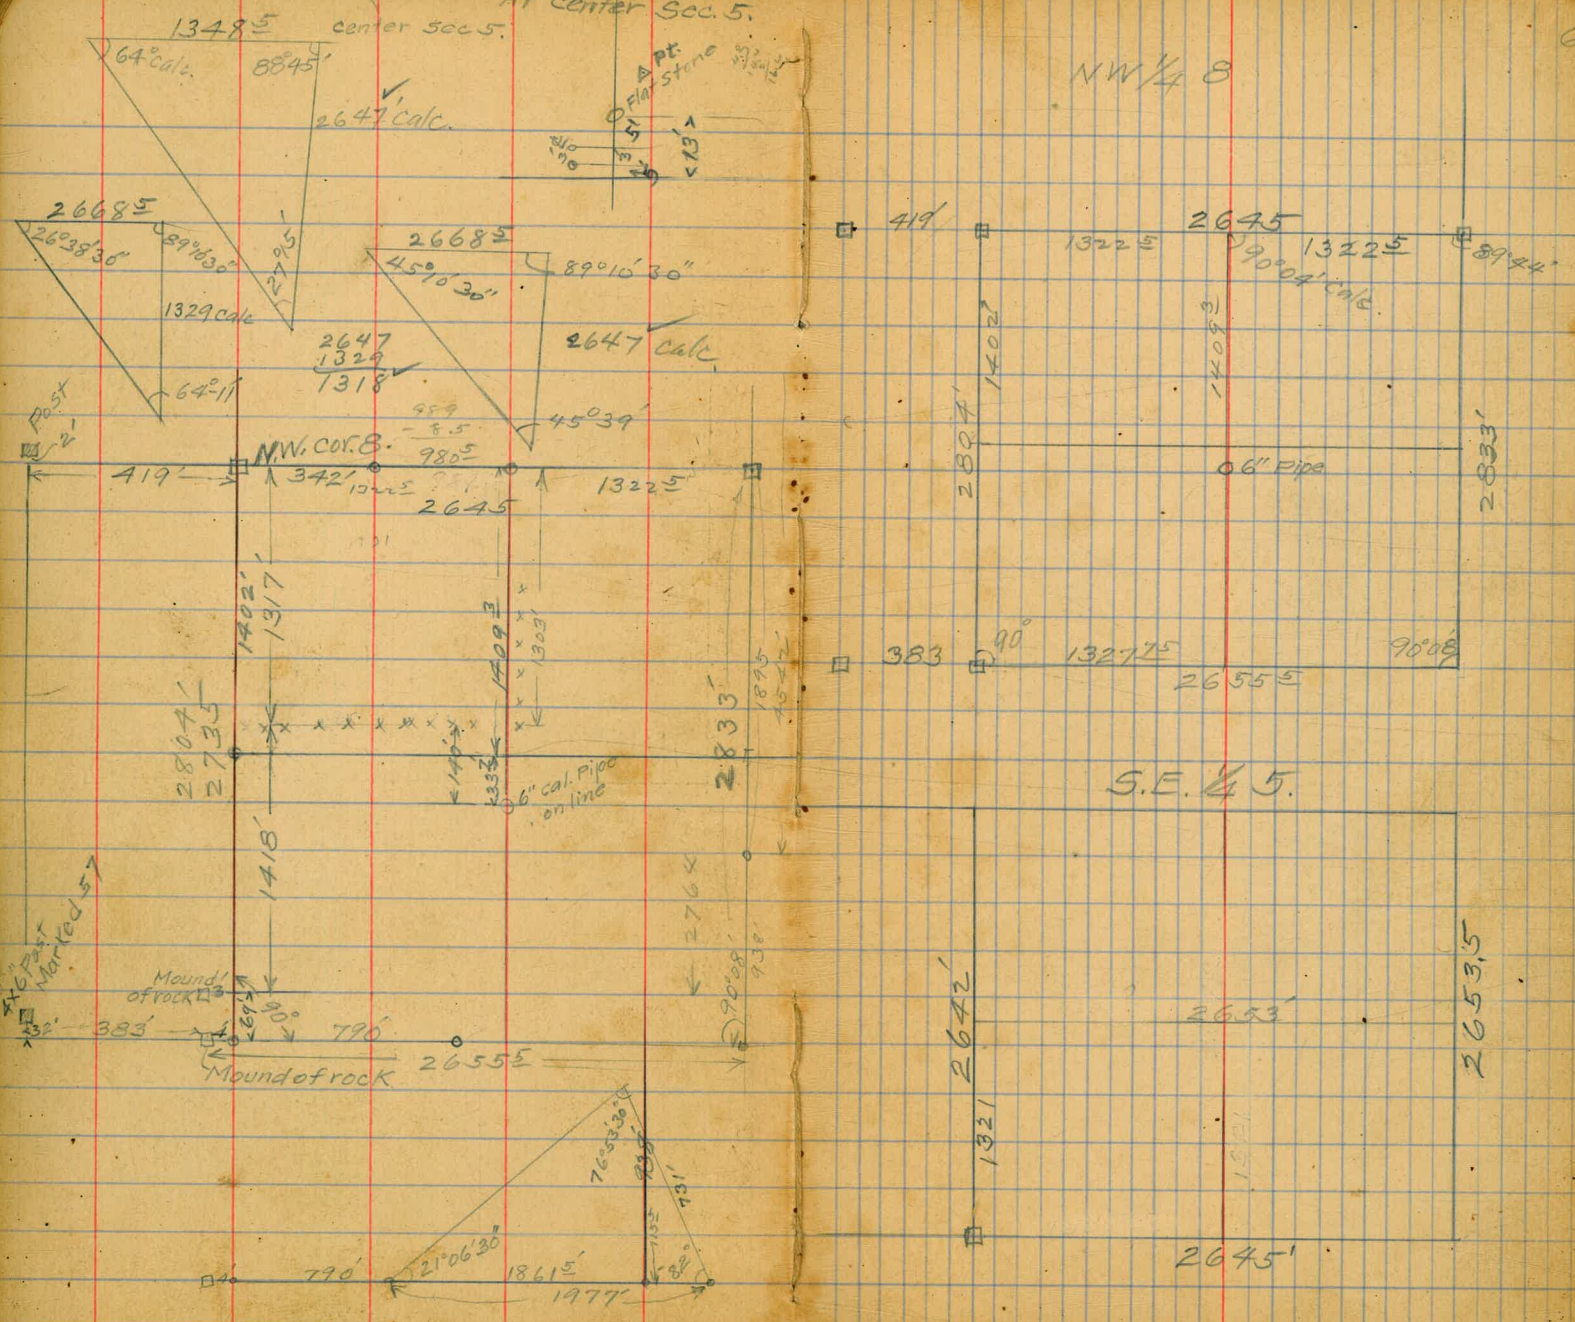 At Center Sec. 5.
1348 5
center Sec 5.
64° Calc.
88°45'
2647' Calc.
27°15'
△ Pt.
Flat Stone
5'
3'
<13'>
2668 5
26°38'30"
89°10'30"
1329 calc
64°-11'
2668 5
45°10'30"
89°10'30"
2647 calc
45°39'
2647
1329
1318
989
- 8.5
980 5
Post
2'
N.W. Cor. 8.
419'
342'
1322 5
1322 5
2645
1402'
1317'
1409 3
1303'
2804'
2735
2833'
1895
<140'>
6" cal. Pipe
on line
1418'
2764
90°08'
938'
4x6" Post
Marked 5
Mound
of rock
3'
<69'>
90°
32'
383'
790'
2655 5
Mound of rock
76°53'30"
938'
731'
21°06'30"
82°
790'
1861 5
1977'
NW 1/4 8
419'
2645
1322 5
1322 5
90°04' calc
89°44'
1402'
1409 3
2804'
2833'
6" Pipe
383
90°
1327 75
90°08'
2655 5
S.E. 1/4 5.
2642'
2653'
2653,5
1321
2645'